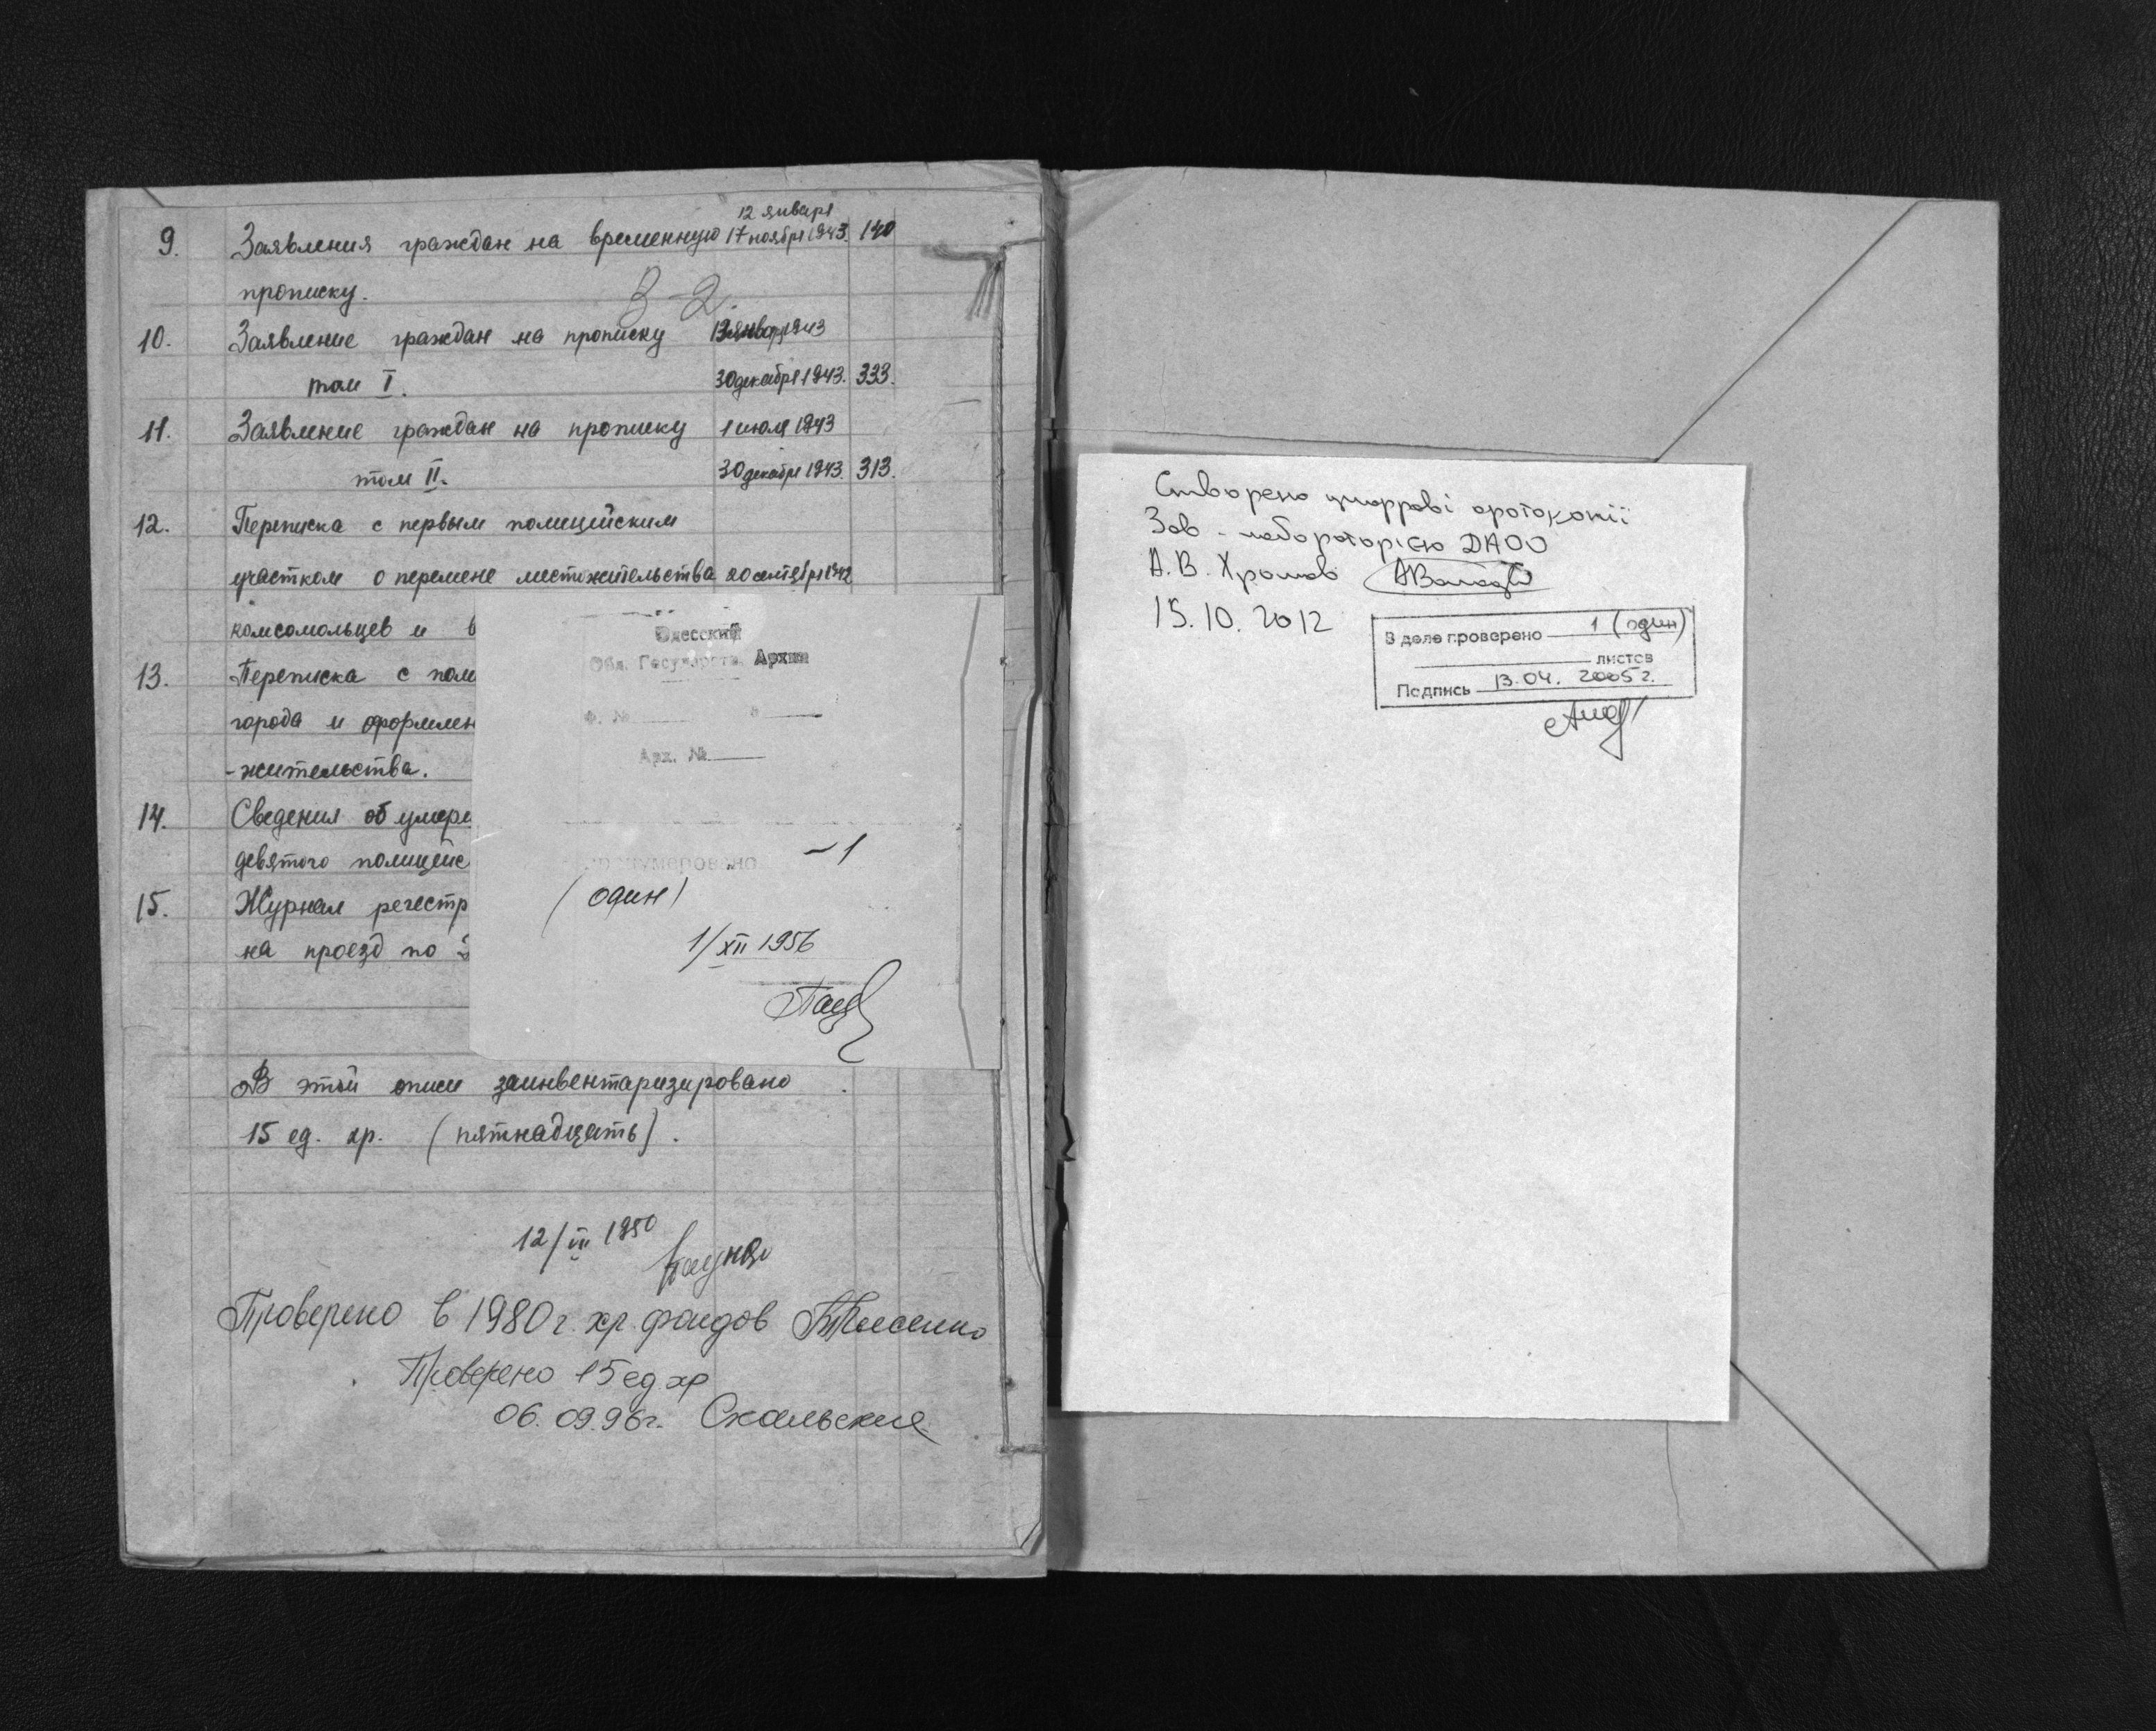 12 января
9. Заявления граждан на временную 17 ноября 1943. 140
прописку.
З-2.
10. Заявление граждан на прописку 13 января 1943
том I. 30 декабря 1943. 333.
11. Заявление граждан на прописку 1 июля 1943
том II. 30 декабря 1943. 313.
12. Переписка с первым полицейским
участком о перемене местожительства 20 сентября 1942
комсомольцев и
13. Переписка с поли
города и оформлен
-жительства.
14. Сведения об умер
девятого полицейс
15. Журнал регистр
на проезд по
Одесский
Обл. Государств. Архив
Ф. №
Арх. №
пронумеровано —1
(один)
1/XII 1956
В этой описи заинвентаризировано
15 ед. хр. (пятнадцать).
12/VII 1950
Проверено в 1980 г. хр. фондов
Проверено 15 ед. хр
06.09.96г. Скальский
Створено цифрові фотокопії
Зав. лабораторією ДАОО
А.В. Хромов
15.10.2012
В деле проверено 1 (один)
листов
Подпись 13.04. 2005 г.